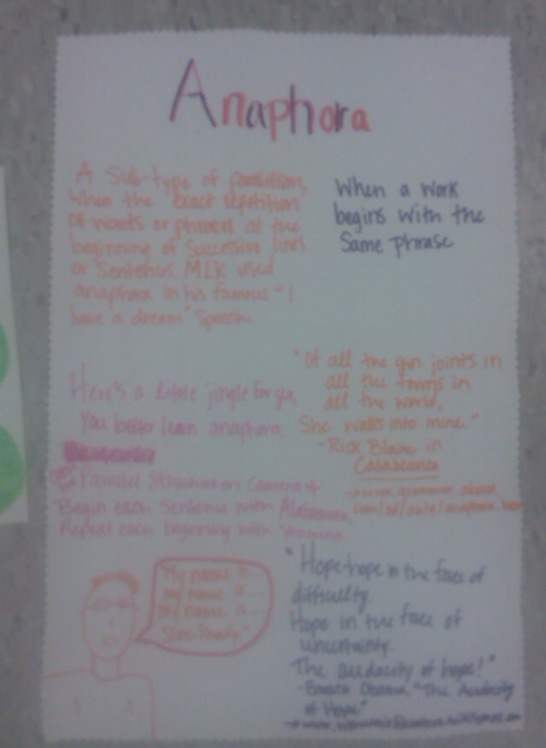 Anaphora
A Sub-type of parallelism,
when the exact repetition
of words or phrases at the
beginning of successive lines
or Sentences. MLK used
anaphora in his famous "I
have a dream" Speech.
When a work
begins with the
Same phrase
Here's a little jingle for you,
You better learn anaphora
Parallel Structure on Camera
Begin each Sentence with
Repeat each beginning with Stamina
"Of all the gin joints in
all the towns in
all the world,
She walks into mine."
-Rick Blaine in
Casablanca
My name is
My name is
My name is
"Slim Shady"
"Hope-hope in the face of
difficulty.
Hope in the face of
uncertainty.
The audacity of hope!"
-Barack Obama, "The Audacity
of Hope"